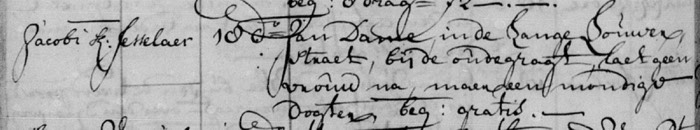 beg: 
Jacobi K: Jesselaer 18 do Jan Dame inde Lange Houwer,
straet, bij de oudegragt, laet geen
vrouw na, maer een mondige
Dogter, beg: gratis.